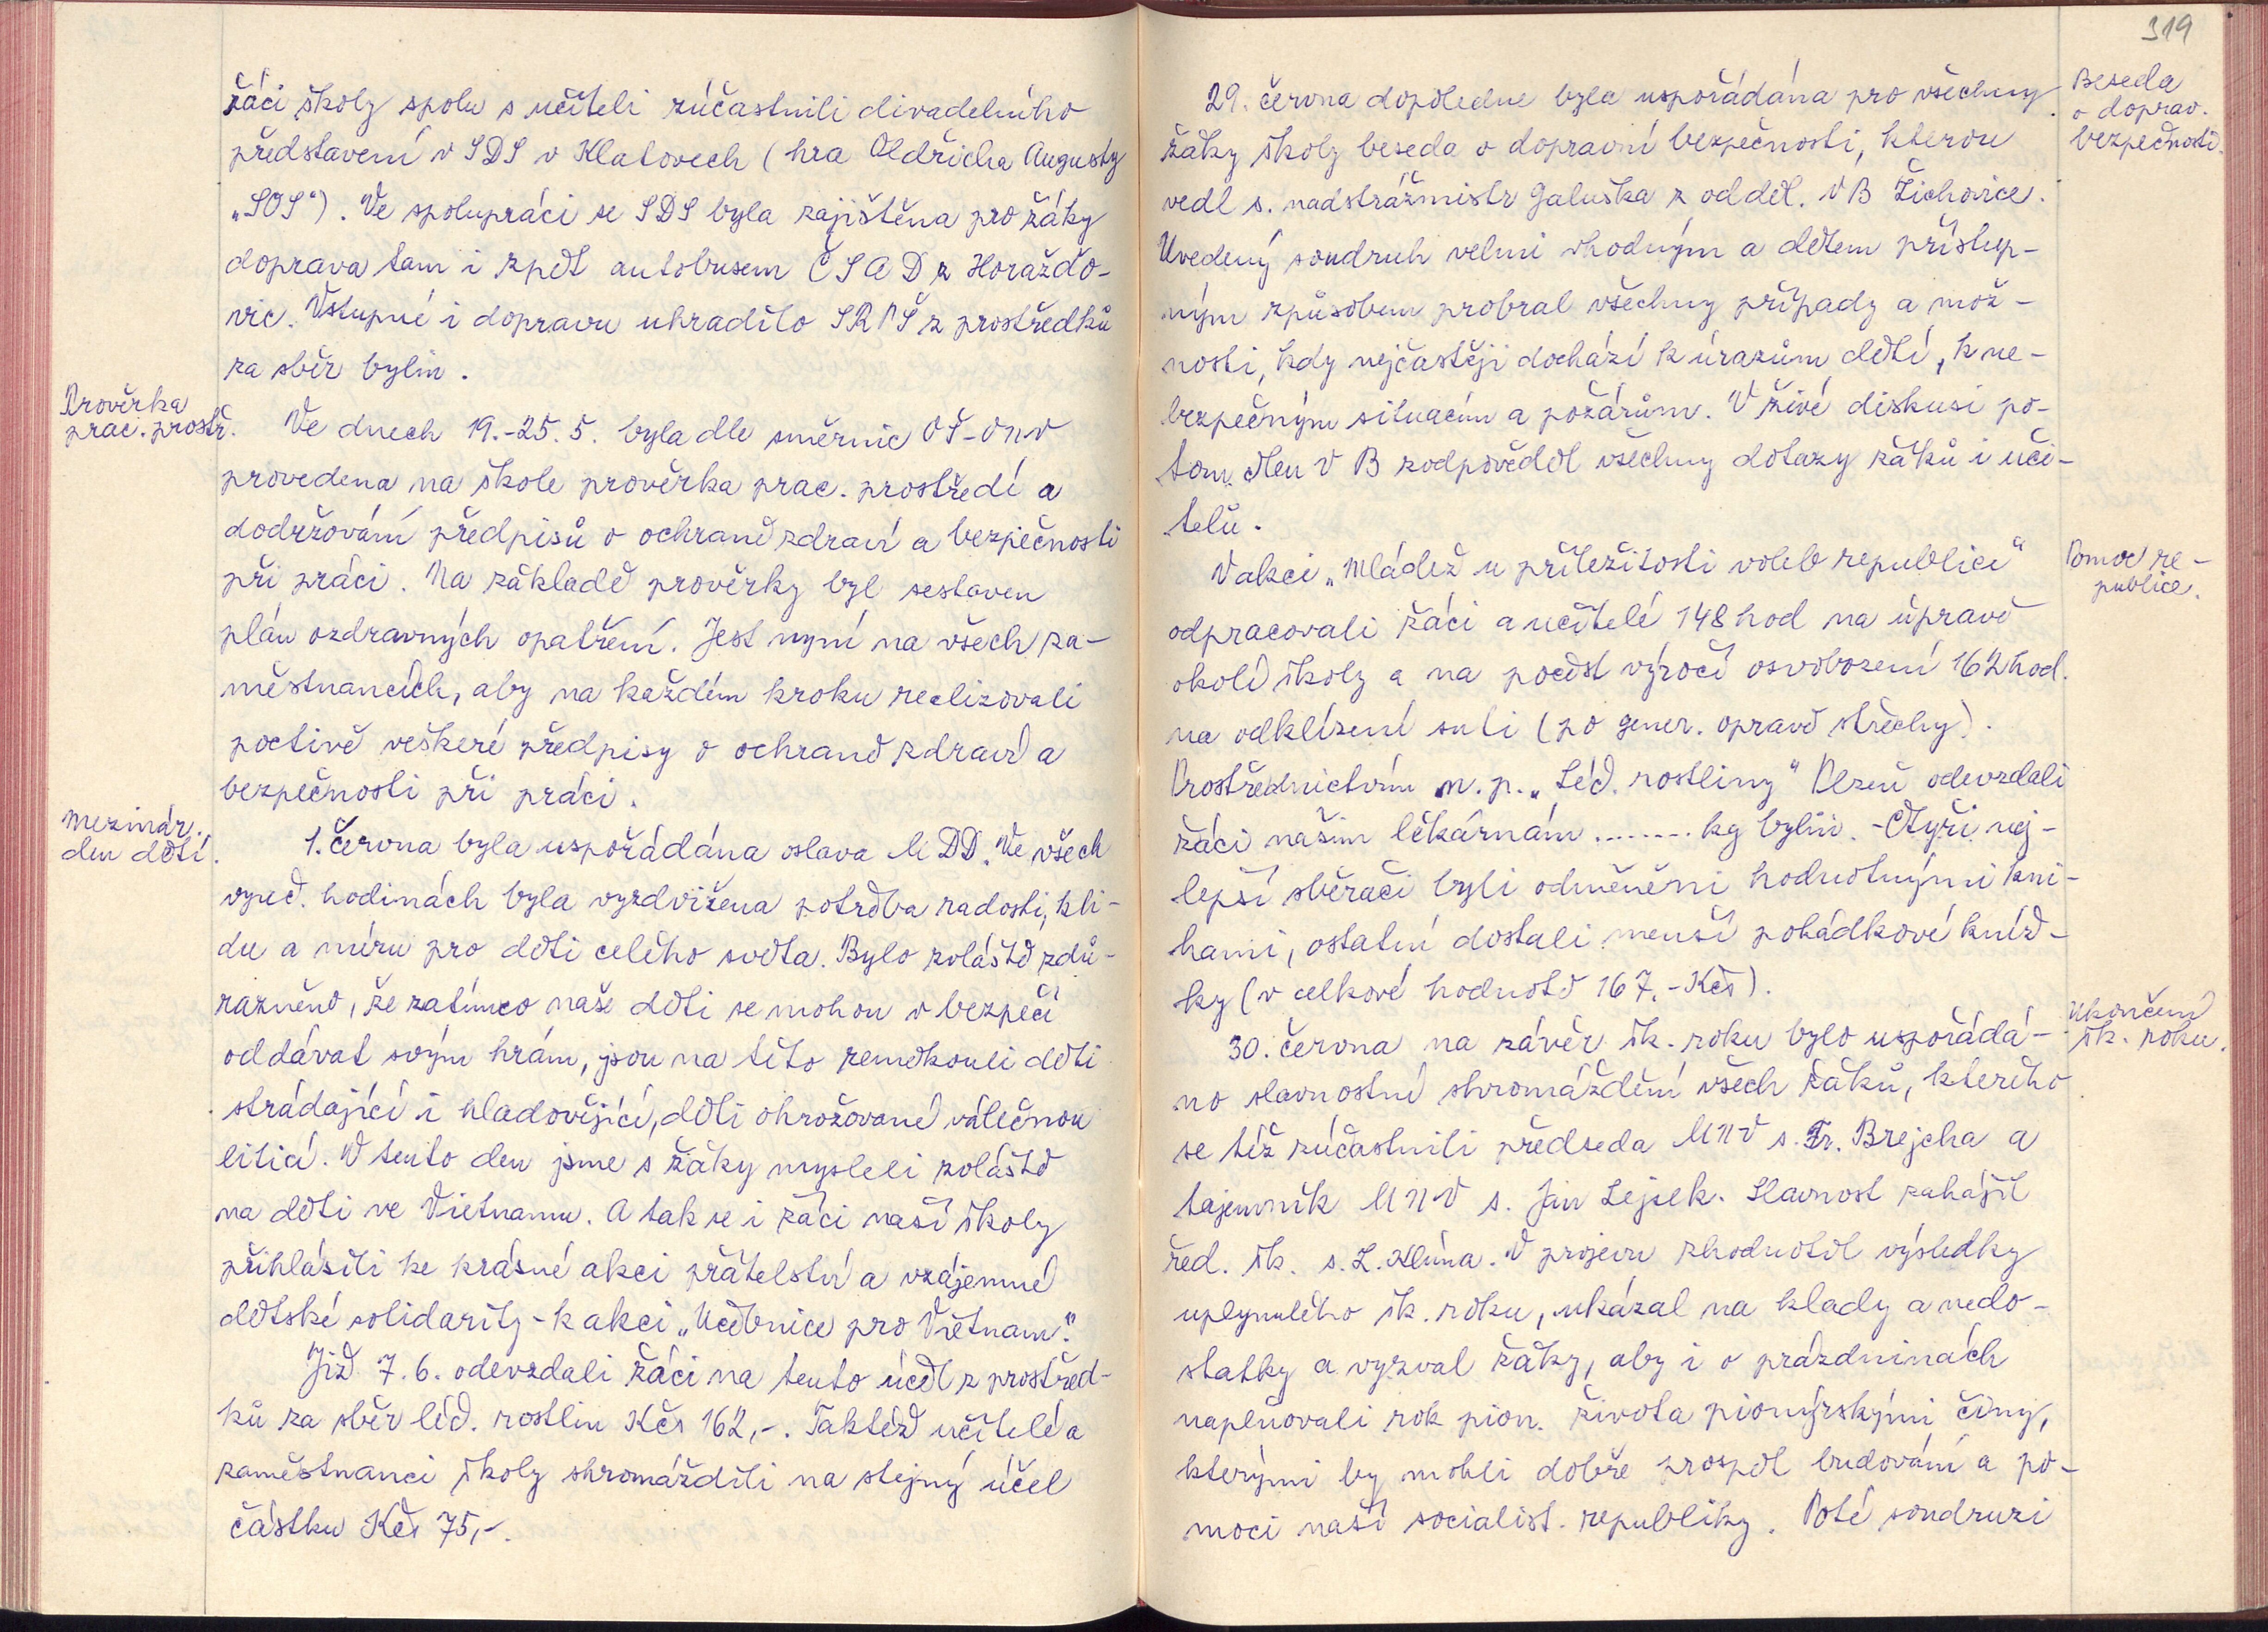 žáci školy spolu s učiteli zúčastnili divadelního
představení v SDS v Klatovech (hra Oldřicha Augusty
„SOS"). Ve spolupráci se SDS byla zajištěna pro žáky
doprava tam i zpět autobusem ČSAD z Horažďo-
vic. Vstupné i dopravu uhradilo SRPŠ z prostředků
za sběr bylin.
Prověrka
prac. prostř.
Ve dnech 19.-25. 5. byla dle směrnic OŠ-ONV
provedena na škole prověrka prac. prostředí a
dodržování předpisů o ochraně zdraví a bezpečnosti
při práci. Na základě prověrky byl sestaven
plán ozdravných opatření. Jest nyní na všech za-
městnancích, aby na každém kroku realizovali
poctivě veškeré předpisy o ochraně zdraví a
bezpečnosti při práci.
Mezinár.
den dětí.
1. června byla uspořádána oslava MDD. Ve všech
vyuč. hodinách byla vyzdvižena potřeba radosti, kli-
du a míru pro děti celého světa. Bylo zvláště zdů-
razněno, že zatímco naše děti se mohou v bezpečí
oddávat svým hrám, jsou na této zeměkouli děti
strádající i hladovějící, děti ohrožované válečnou
liticí. V tento den jsme s žáky mysleli zvláště
na děti ve Vietnamu. A tak se i žáci naší školy
přihlásili ke krásné akci přátelství a vzájemné
dětské solidarity - k akci „Učebnice pro Vietnam."
Již 7. 6. odevzdali žáci na tento účel z prostřed-
ků za sběr léč. rostlin Kčs 162,-. Taktéž učitelé a
zaměstnanci školy shromáždili na stejný účel
částku Kčs 75,-.
319
Beseda
o doprav.
bezpečnosti.
29. června dopoledne byla uspořádána pro všechny
žáky školy beseda o dopravní bezpečnosti, kterou
vedl s. nadstrážmistr Galuška z odděl. VB Žichovice.
Uvedený soudruh velmi vhodným a dětem přístup-
ným způsobem probral všechny případy a mož-
nosti, kdy nejčastěji dochází k úrazům dětí, k ne-
bezpečným situacím a požárům. V živé diskusi po-
tom člen VB zodpověděl všechny dotazy žáků i uči-
telů.
Pomoc re-
publice.
V akci „Mládež u příležitosti voleb republice"
odpracovali žáci a učitelé 148 hod na úpravě
okolí školy a na počest výročí osvobození 162 hod.
na odklízení suti (po gener. opravě střechy).
Prostřednictvím n. p. „Léč. rostliny" Plzeň odevzdali
žáci našim lékárnám ........ kg bylin. - Čtyři nej-
lepší sběrači byli odměněni hodnotnými kni-
hami, ostatní dostali menší pohádkové kníž-
ky (v celkové hodnotě 167.- Kčs).
Ukončení
šk. roku.
30. června na závěr šk. roku bylo uspořádá-
no slavnostní shromáždění všech žáků, kterého
se též zúčastnili předseda MNV s. Fr. Brejcha a
tajemník MNV s. Jan Lejsek. Slavnost zahájil
řed. šk. s. L. Klíma. V projevu zhodnotil výsledky
uplynulého šk. roku, ukázal na klady a nedo-
statky a vyzval žáky, aby i o prázdninách
naplňovali rok pion. života pionýrskými činy,
kterými by mohli dobře prospět budování a po-
moci naší socialist. republiky. Poté soudruzi